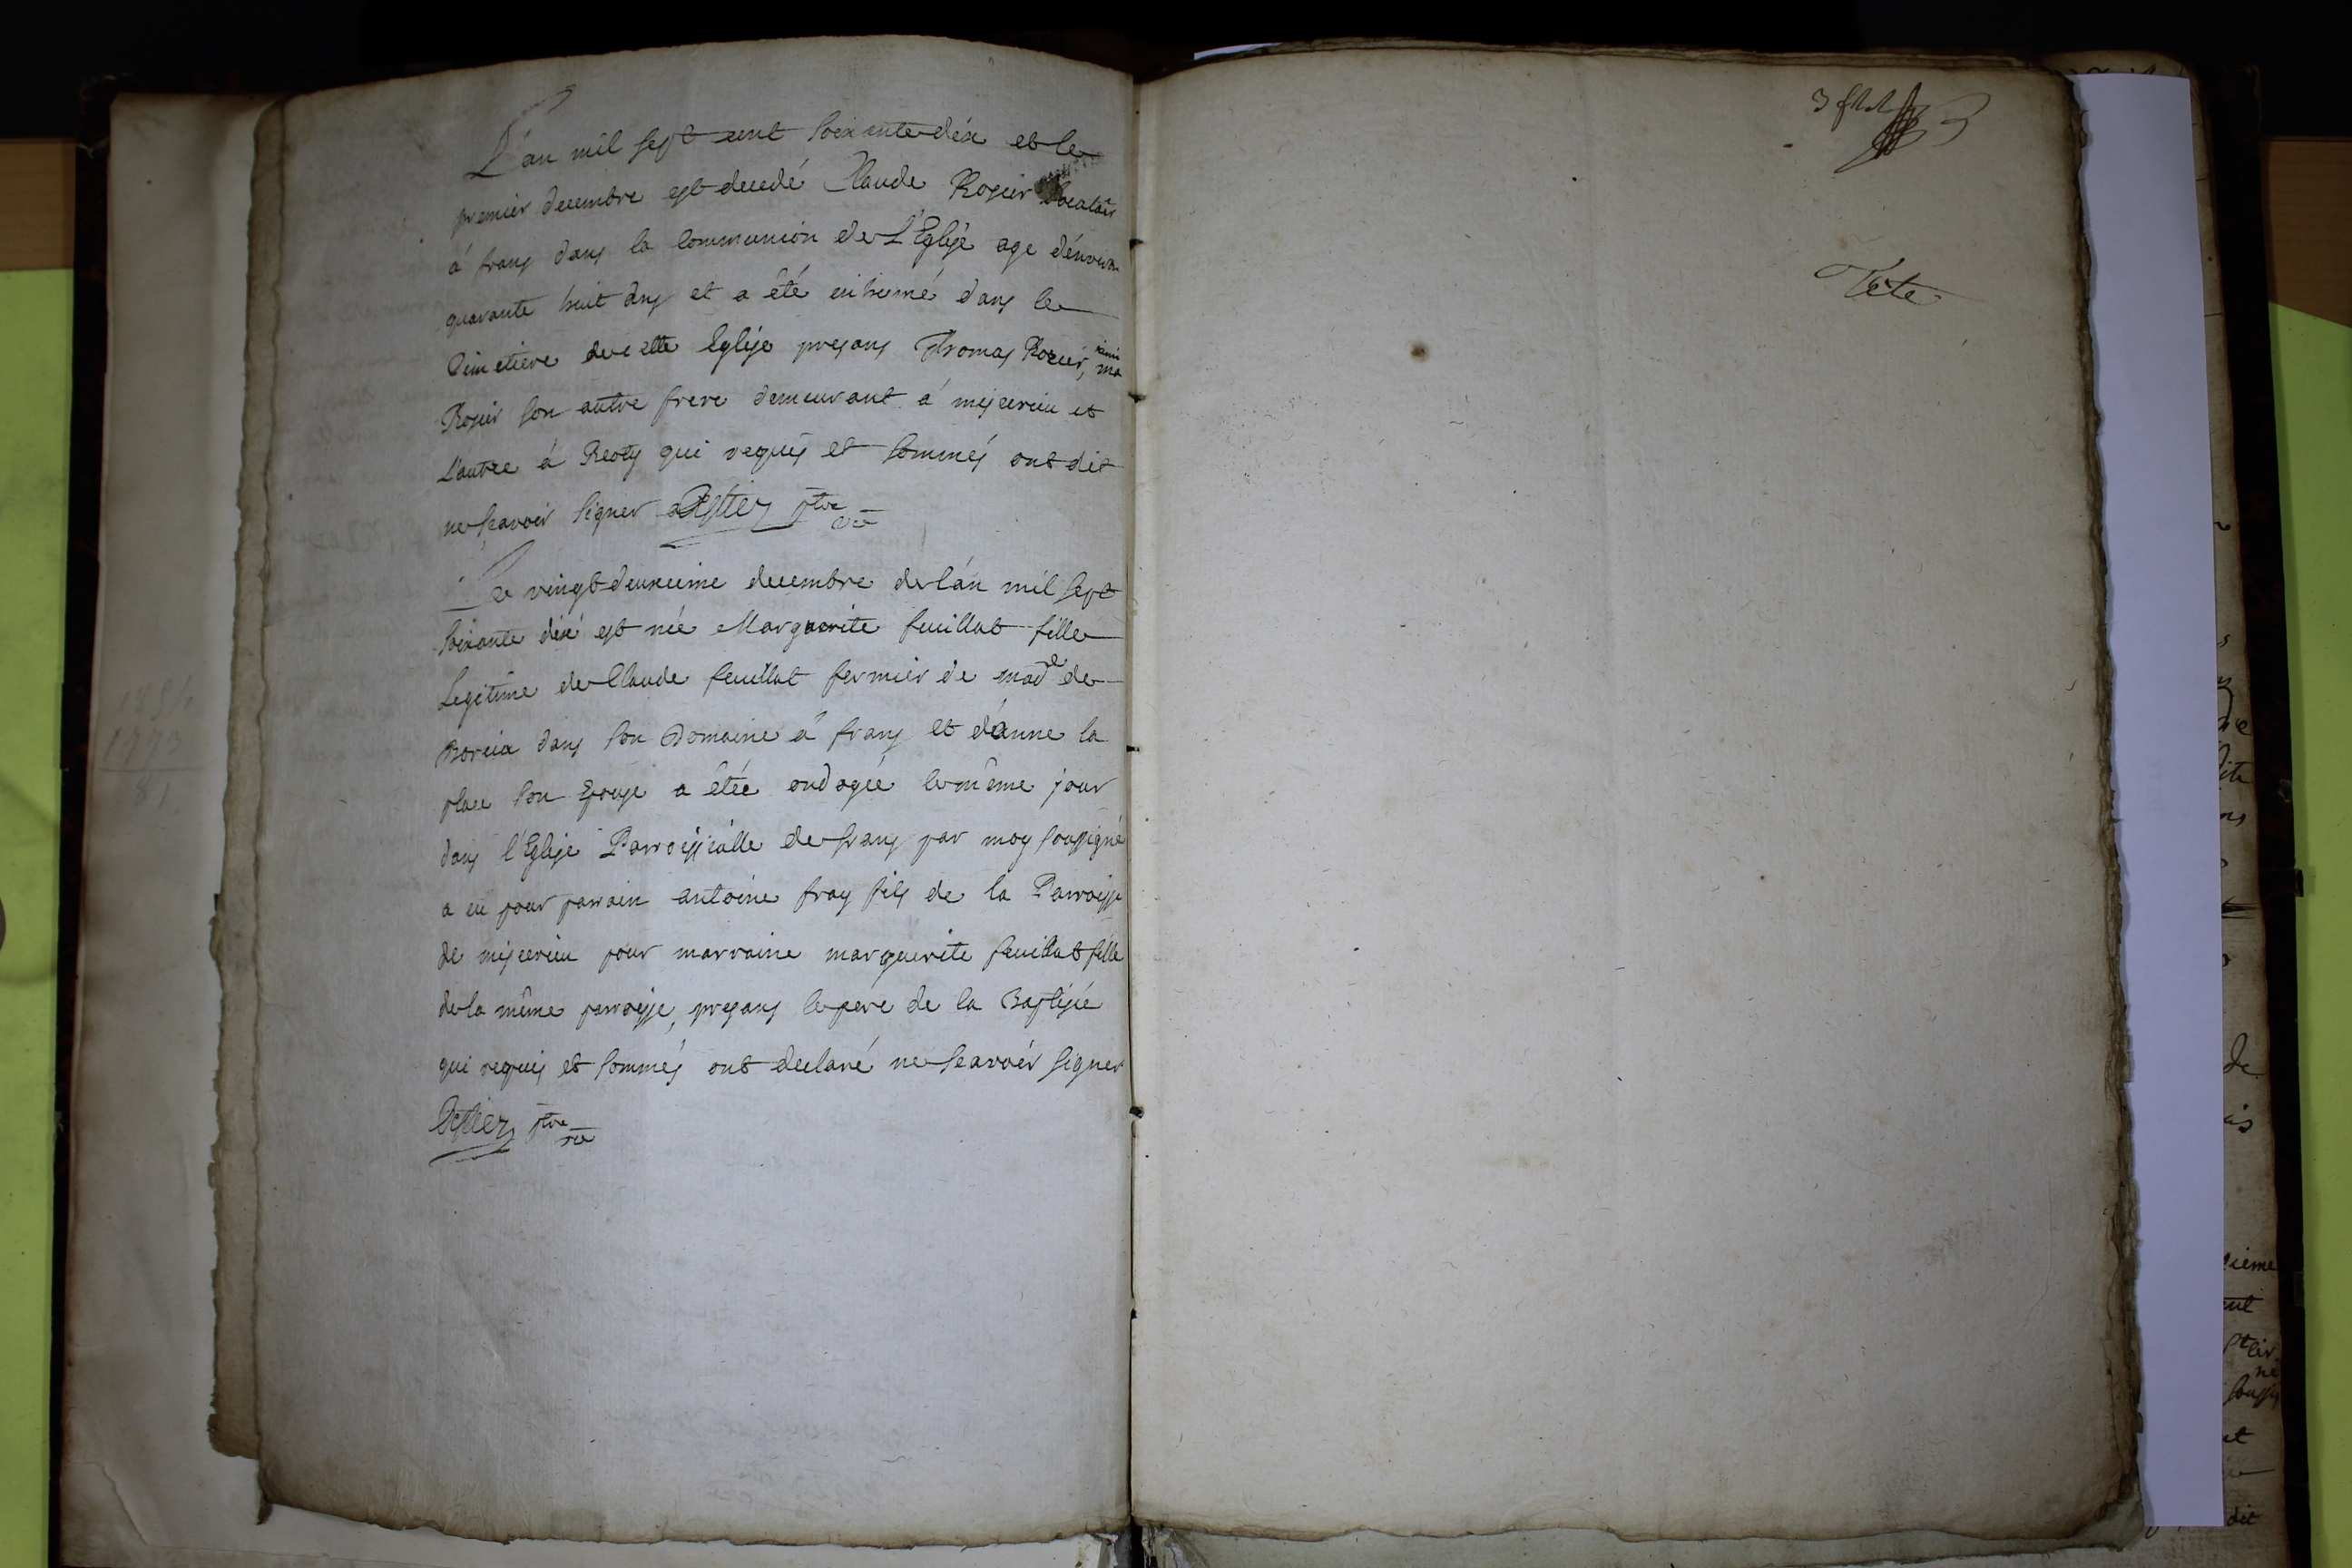 L'an mil sept cent soixante dix et le
premier decembre est decedé Claude Rosier locataire
á frans dans la communion de L'Eglise age d'environ
quarante huit ans et a été inhumé dans le
Cimetiere de cette Eglise presans Thomas Rosier,
Rosier son autre frere demeurant á miserieu et
L'autre á Reoty qui requis et sommés ont dit
ne scavoir signer ptre
Le vingt deuxieme decembre de lán mil sept
soixante dix est née Marguerite feuillat fille
Legitime de Claude feuillat fermier de made de
dans son Domaine á frans et dánne la
place son Epouse a étée ondogée le même jour
dans l'Eglise Parroissialle de frans par moy soussigné
a eu pour parrain antoine fray fils de la Parroisse
de miserieu pour marraine marguerite feuillat fille
de la même parroisse, presans le pere de la Baptisée
qui requis et sommés ont declaré ne scavoir signer
ptre
Tete